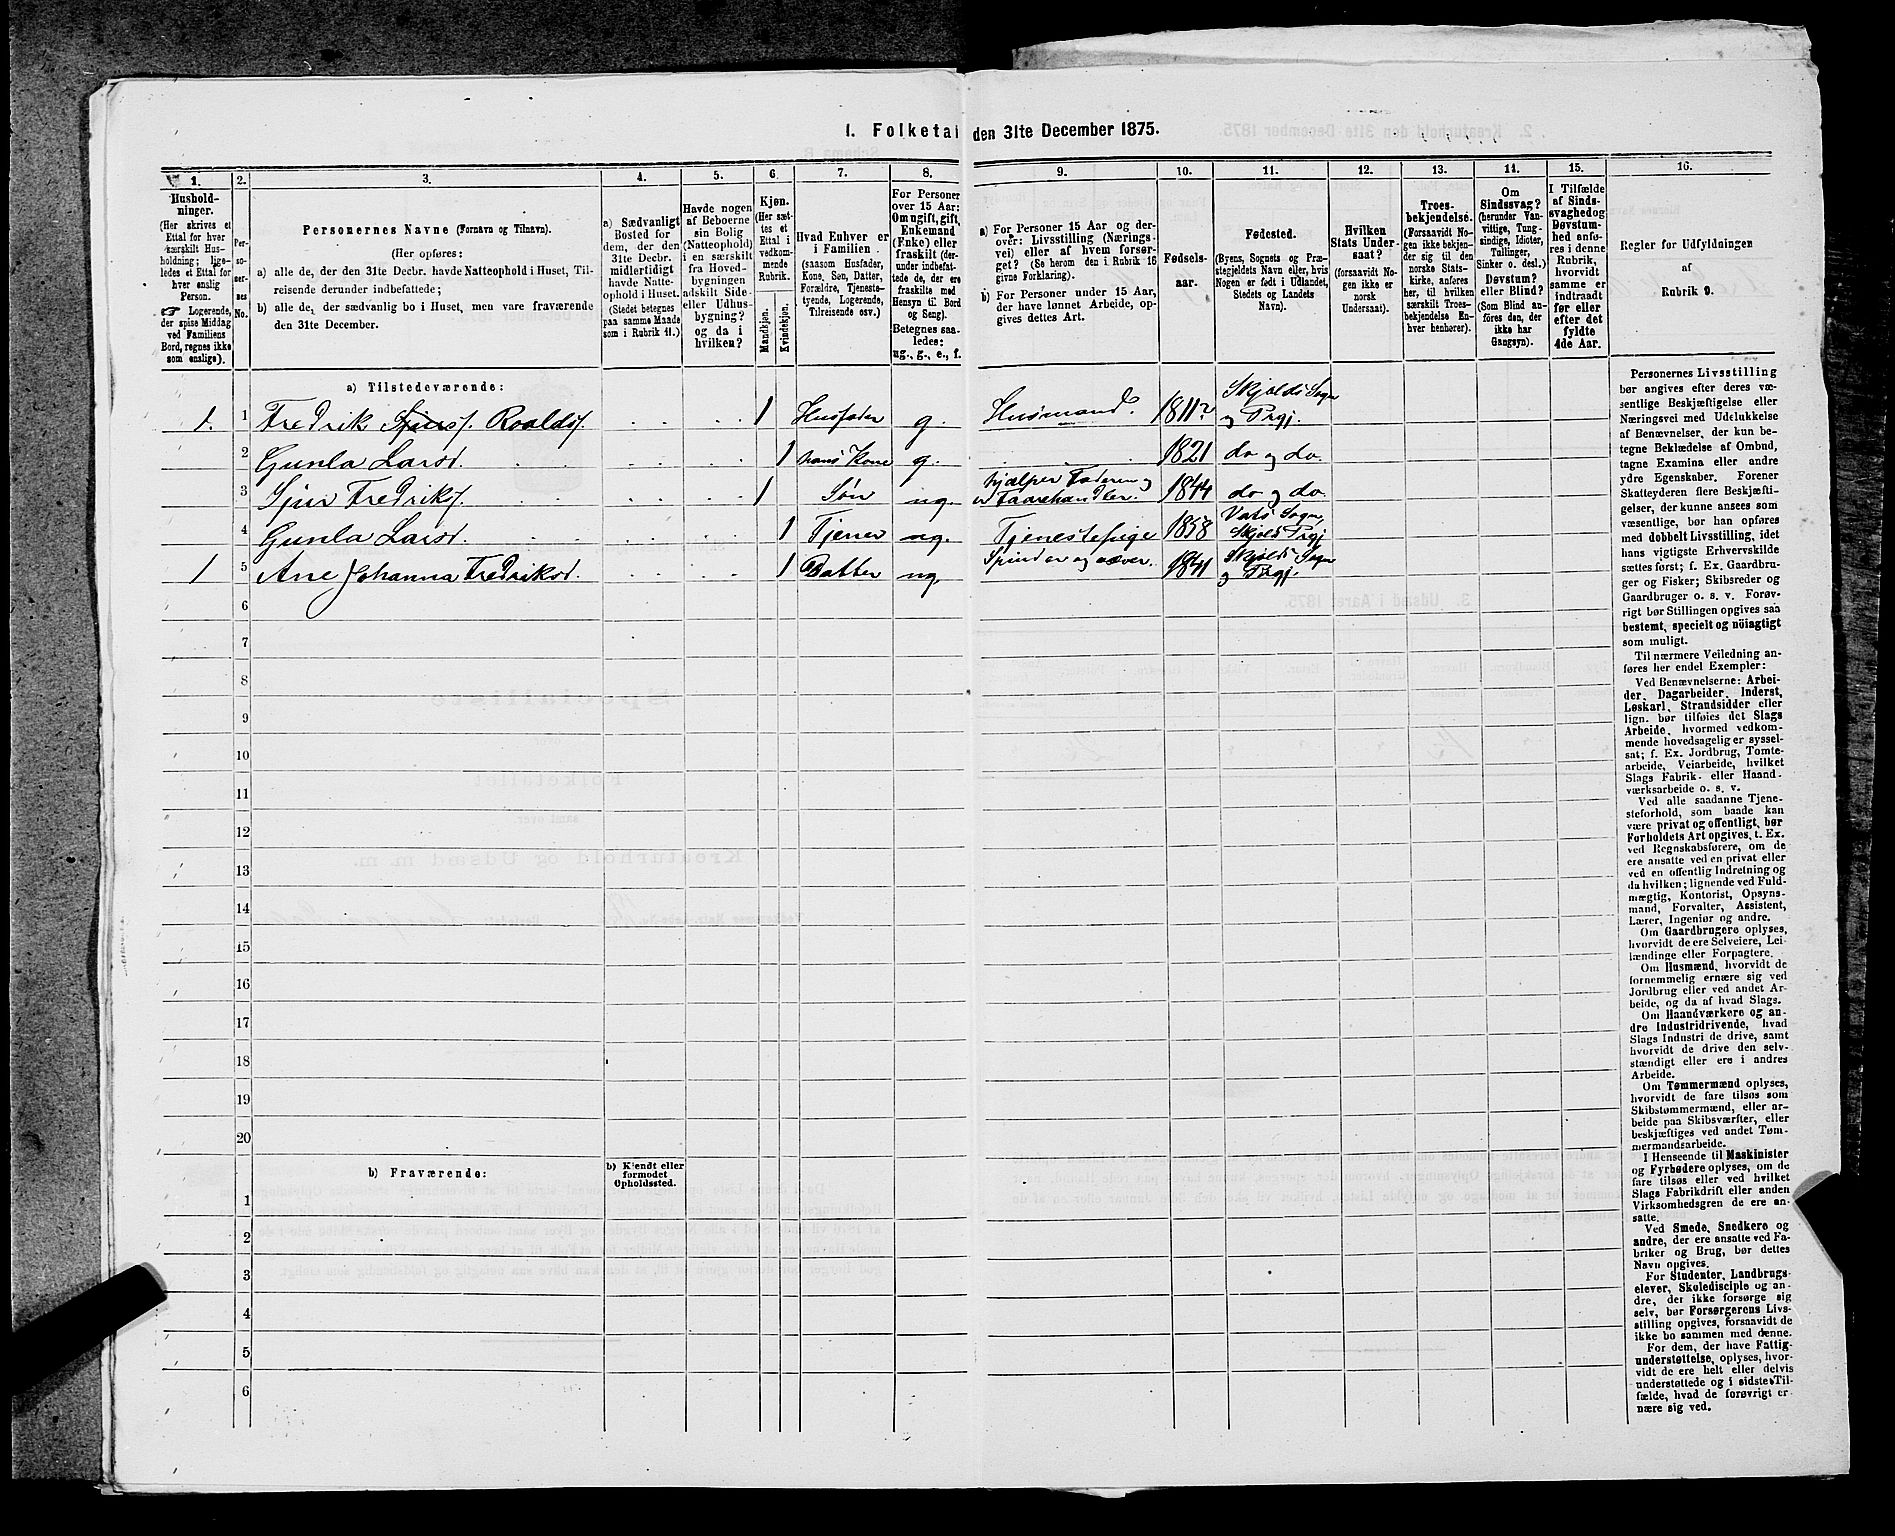 1. Folketal den 31te December 1875.
1. 2. 3. 4. 5. 6. 7. 8. 9. 10. 11. 12. 13. 14. 15. 16.
Husholdninger.
(Her skrives et
Ettal for hver
særskilt Husholdning;
ligeledes et Ettal for
hver enslig
Person.
Logerende,
der spise Middag
ved Familiens
Bord, regnes ikke
som enslige).
Personernes No.
Personernes Navne (Fornavn og Tilnavn).
(Her opføres:
a) alle de, der den 31te Decbr. havde Natteophold i Huset, Tilreisende derunder indbefattede;
b) alle de, der sædvanlig bo i Huset, men vare fraværende
den 31te December.
a) Sædvanligt
Bosted for
dem, der den
31te Decbr.
midlertidigt
havde Natteophold i Huset.
(Stedet betegnes
paa samme Maade
som i Rubrik 11.)
Havde nogen
af Beboerne
sin Bolig
(Natteophold)
i en særskilt
fra Hovedbygningen
adskilt Side-
eller Udhusbygning?
og da i
hvilken?
Kjøn.
(Her sættes et
Ettal i
vedkommende
Rubrik.
Mandkjøn.
Kvindekjøn.
Hvad Enhver er
i Familien
(saasom Husfader,
Kone, Søn, Datter,
Forældre, Tjenestetyende, Logerende,
Tilreisende osv.)
For Personer
over 15 Aar:
Om ugift, gift,
Enkemand
(Enke) eller
fraskilt (derunder indbefattede de, der ere
fraskilte med
Hensyn til Bord
og Seng).
Betegnes saaledes:
ug., g., e., f.
a) For Personer 15 Aar og derover: Livsstilling (Næringsvei) eller af hvem forsørget? (Se herom den i Rubrik 16
givne Forklaring).
b) For Personer under 15 Aar,
der have lønnet Arbeide, opgives dettes Art.
Fødselsaar.
Fødested.
(Byens, Sognets og Præstegjeldets Navn eller, hvis
Nogen er født i Udlandet,
Stedets og Landets
Navn).
Hvilken
Stats Undersaat?
(forsaavidt Nogen ikke er
norsk
Undersaat).
Troesbekjendelse.
(Forsaavidt Nogen ikke bekjender sig til den
norske Statskirke, anføres
her, til hvilken
særskilt Troesbekjendelse Enhver henhører).
Om
Sindssvag?
(herunder Vanvittige, Tungsindige, Idioter,
Tullinger,
Sinker o. desl.)
Døvstum?
eller Blind?
(Som Blind anføres den, der
ikke har
Gangsyn).
I Tilfælde
af Sindssvaghed og
Døvstumhed anføres i denne
Rubrik,
hvorvidt
samme er
indtraadt
før eller
efter det
fyldte
4de Aar.
Regler for Udfyldningen
af
Rubrik 9.
a) Tilstedeværende:
1. 1 Fredrik Sjurs. Roalds. 1 Husfader g. Husmand. 1811? Skjolds Sogn og Prgj.
2 Gunla Larsd. 1 hans Kone g. 1821 do og do.
3 Sjur Fredriks. 1 Søn ug. hjælper Faderen og er Faarehandler. 1844 do og do.
4 Gunla Larsd. 1 Tjener ug. Tjenestepige 1858 Vats Sogn, Skjolds Prgj
1 5 Ane Johanna Fredriksd. 1 Datter ug. Spinder og væver. 1841 Skjolds Sogn og Prgj.
6
7
8
9
10
11
12
13
14
15
16
17
18
19
20
b) Fraværende:
b) Kjendt eller
formodet
Opholdssted.
1
2
3
4
5
6
Personernes Livsstilling
bør angives efter deres væsentlige Beskjæftigelse eller
Næringsvei med Udelukkelse
af Benævnelser, der kun betegne Beklædelse af Ombud,
tagne Examina eller andre
ydre Egenskaber. Forener
Skatteyderen flere Beskjæftigelser, der kunne ansees som
væsentlige, bør han opføres
med dobbelt Livsstilling, idet
hans vigtigste Erhvervskilde
sættes først; f. Ex. Gaardbruger og Fisker; Skibsreder og
Gaardbruger o. s. v. Forøvrigt bør Stillingen opgives saa
bestemt, specielt og nöiagtigt
som muligt.
Til nærmere Veiledning anføres her endel Exempler:
Ved Benævnelserne: Arbeider, Dagarbeider, Inderst,
Løskarl, Strandsidder eller
lign. bør tilføies det Slags
Arbeide, hvormed vedkommende hovedsagelig er sysselsat; f. Ex. Jordbrug, Tomtearbeide, Veiarbeide, hvilket
Slags Fabrik- eller Haandværksarbeide o. s. v.
Ved alle saadanne Tjenesteforhold, som baade kan
være privat og offentligt, bør
Forholdets Art opgives, t. Ex.
ved Regnskabsførere, om de
ere ansatte ved en privat eller
ved en offentlig Indretning og
da hvilken; lignende ved Fuldmægtig, Kontorist, Opsynsmand, Forvalter, Assistent,
Lærer, Ingeniør og andre.
Om Gaardbrugere oplyses,
hvorvidt de ere Selveiere, Leilændinge eller Forpagtere.
Om Husmænd, hvorvidt de
fornemmelig ernære sig ved
Jordbrug eller ved andet Arbeide, og da af hvad Slags.
Om Haandværkere og andre Industridrivende, hvad
Slags Industri de drive, samt
hvorvidt de drive den selvstændigt eller ere i andres
Arbeide.
Om Tømmermænd oplyses,
hvorvidt de fare tilsøs som
Skibstømmermænd, eller arbeide paa Skibsværfter, eller
beskjæftiges ved andet Tømmermandsarbeide.
I Henseende til Maskinister
og Fyrbødere oplyses, om de
fare tilsøs eller ved hvilket
Slags Fabrikdrift eller anden
Virksomhedsgren de ere ansatte.
Ved Smede, Snedkere og
andre, der ere ansatte ved Fabriker og Brug, bør dettes
Navn opgives.
For Studenter, Landbrugselever, Skoledisciple og andre, der ikke forsørge sig
selv, bør Forsørgerens Livsstilling opgives, forsaavidt de
ikke bo sammen med denne.
For dem, der have Fattigunderstøttelse, oplyses, hvorvidt de ere helt eller delvis
understøttede og i sidste Tilfælde, hvad de forøvrigt ernære sig ved.